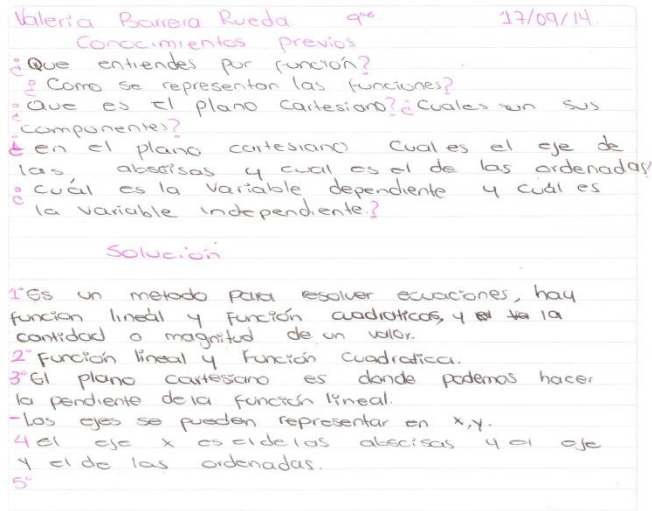 Valeria Barrera Rueda. 9º 17/09/14.
Conocimientos previos
¿Que entiendes por función?
¿Como se representan las funciones?
¿Que es el plano cartesiano? ¿Cuales son sus
componentes?
¿en el plano cartesiano cual es el eje de
las abscisas y cual es el de las ordenadas?
¿cuál es la variable dependiente y cuál es
la variable independiente.?
Solución
1º Es un metodo para resolver ecuaciones, hay
funcion lineal y función cuadraticas, y la
cantidad o magnitud de un valor.
2º Función lineal y Función cuadratica.
3º El plano cartesiano es donde podemos hacer
la pendiente de la función lineal.
-Los ejes se pueden representar en x,y.
4 el eje x es el de las abscisas y el eje
y el de las ordenadas.
5º